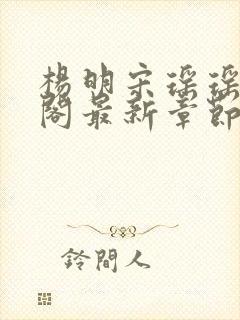 楊明宋瑤瑤
閣最新章節
鈴間人